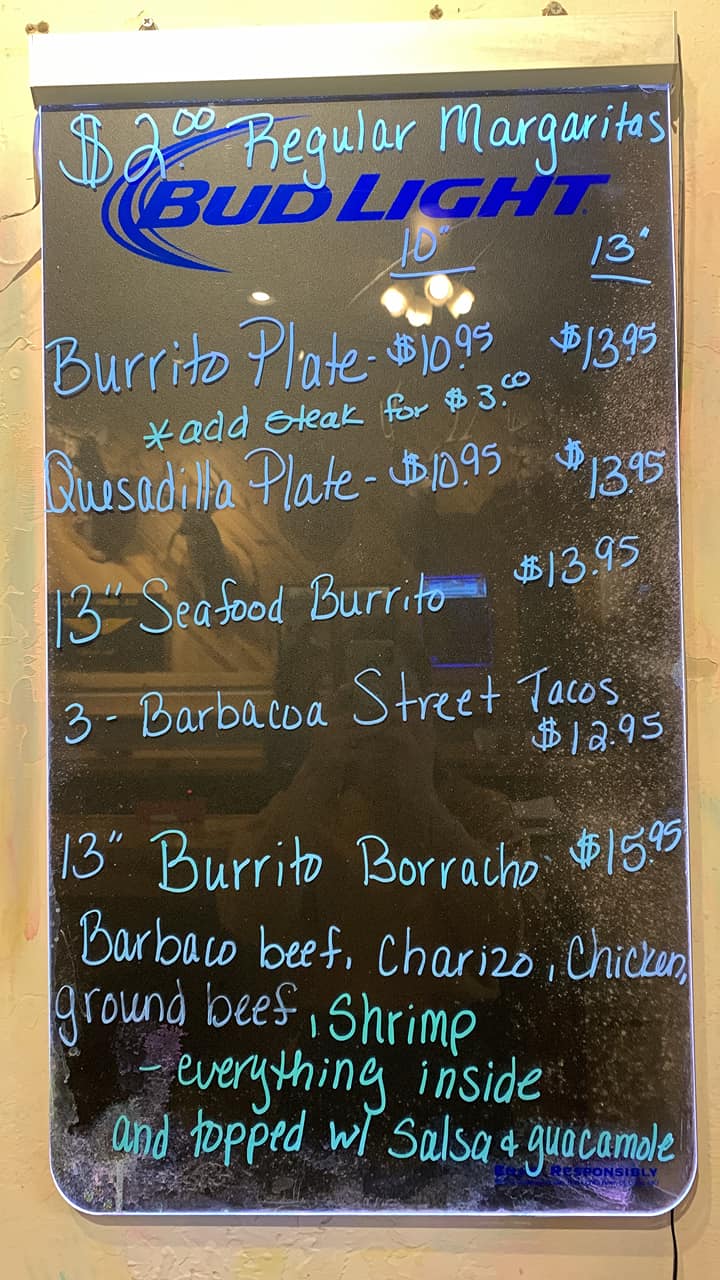 $2.00 Regular Margaritas
BUD LIGHT
10" 13"
Burrito Plate - $10.95 $13.95
*add steak for $3.00
Quesadilla Plate - $10.95 $13.95
13" Seafood Burrito $13.95
3 - Barbacoa Street Tacos
$12.95
13" Burrito Borracho $15.95
Barbaco beef, Charizo, Chicken,
ground beef, Shrimp
- everything inside
and topped w/ Salsa & guacamole
RESPONSIBLY